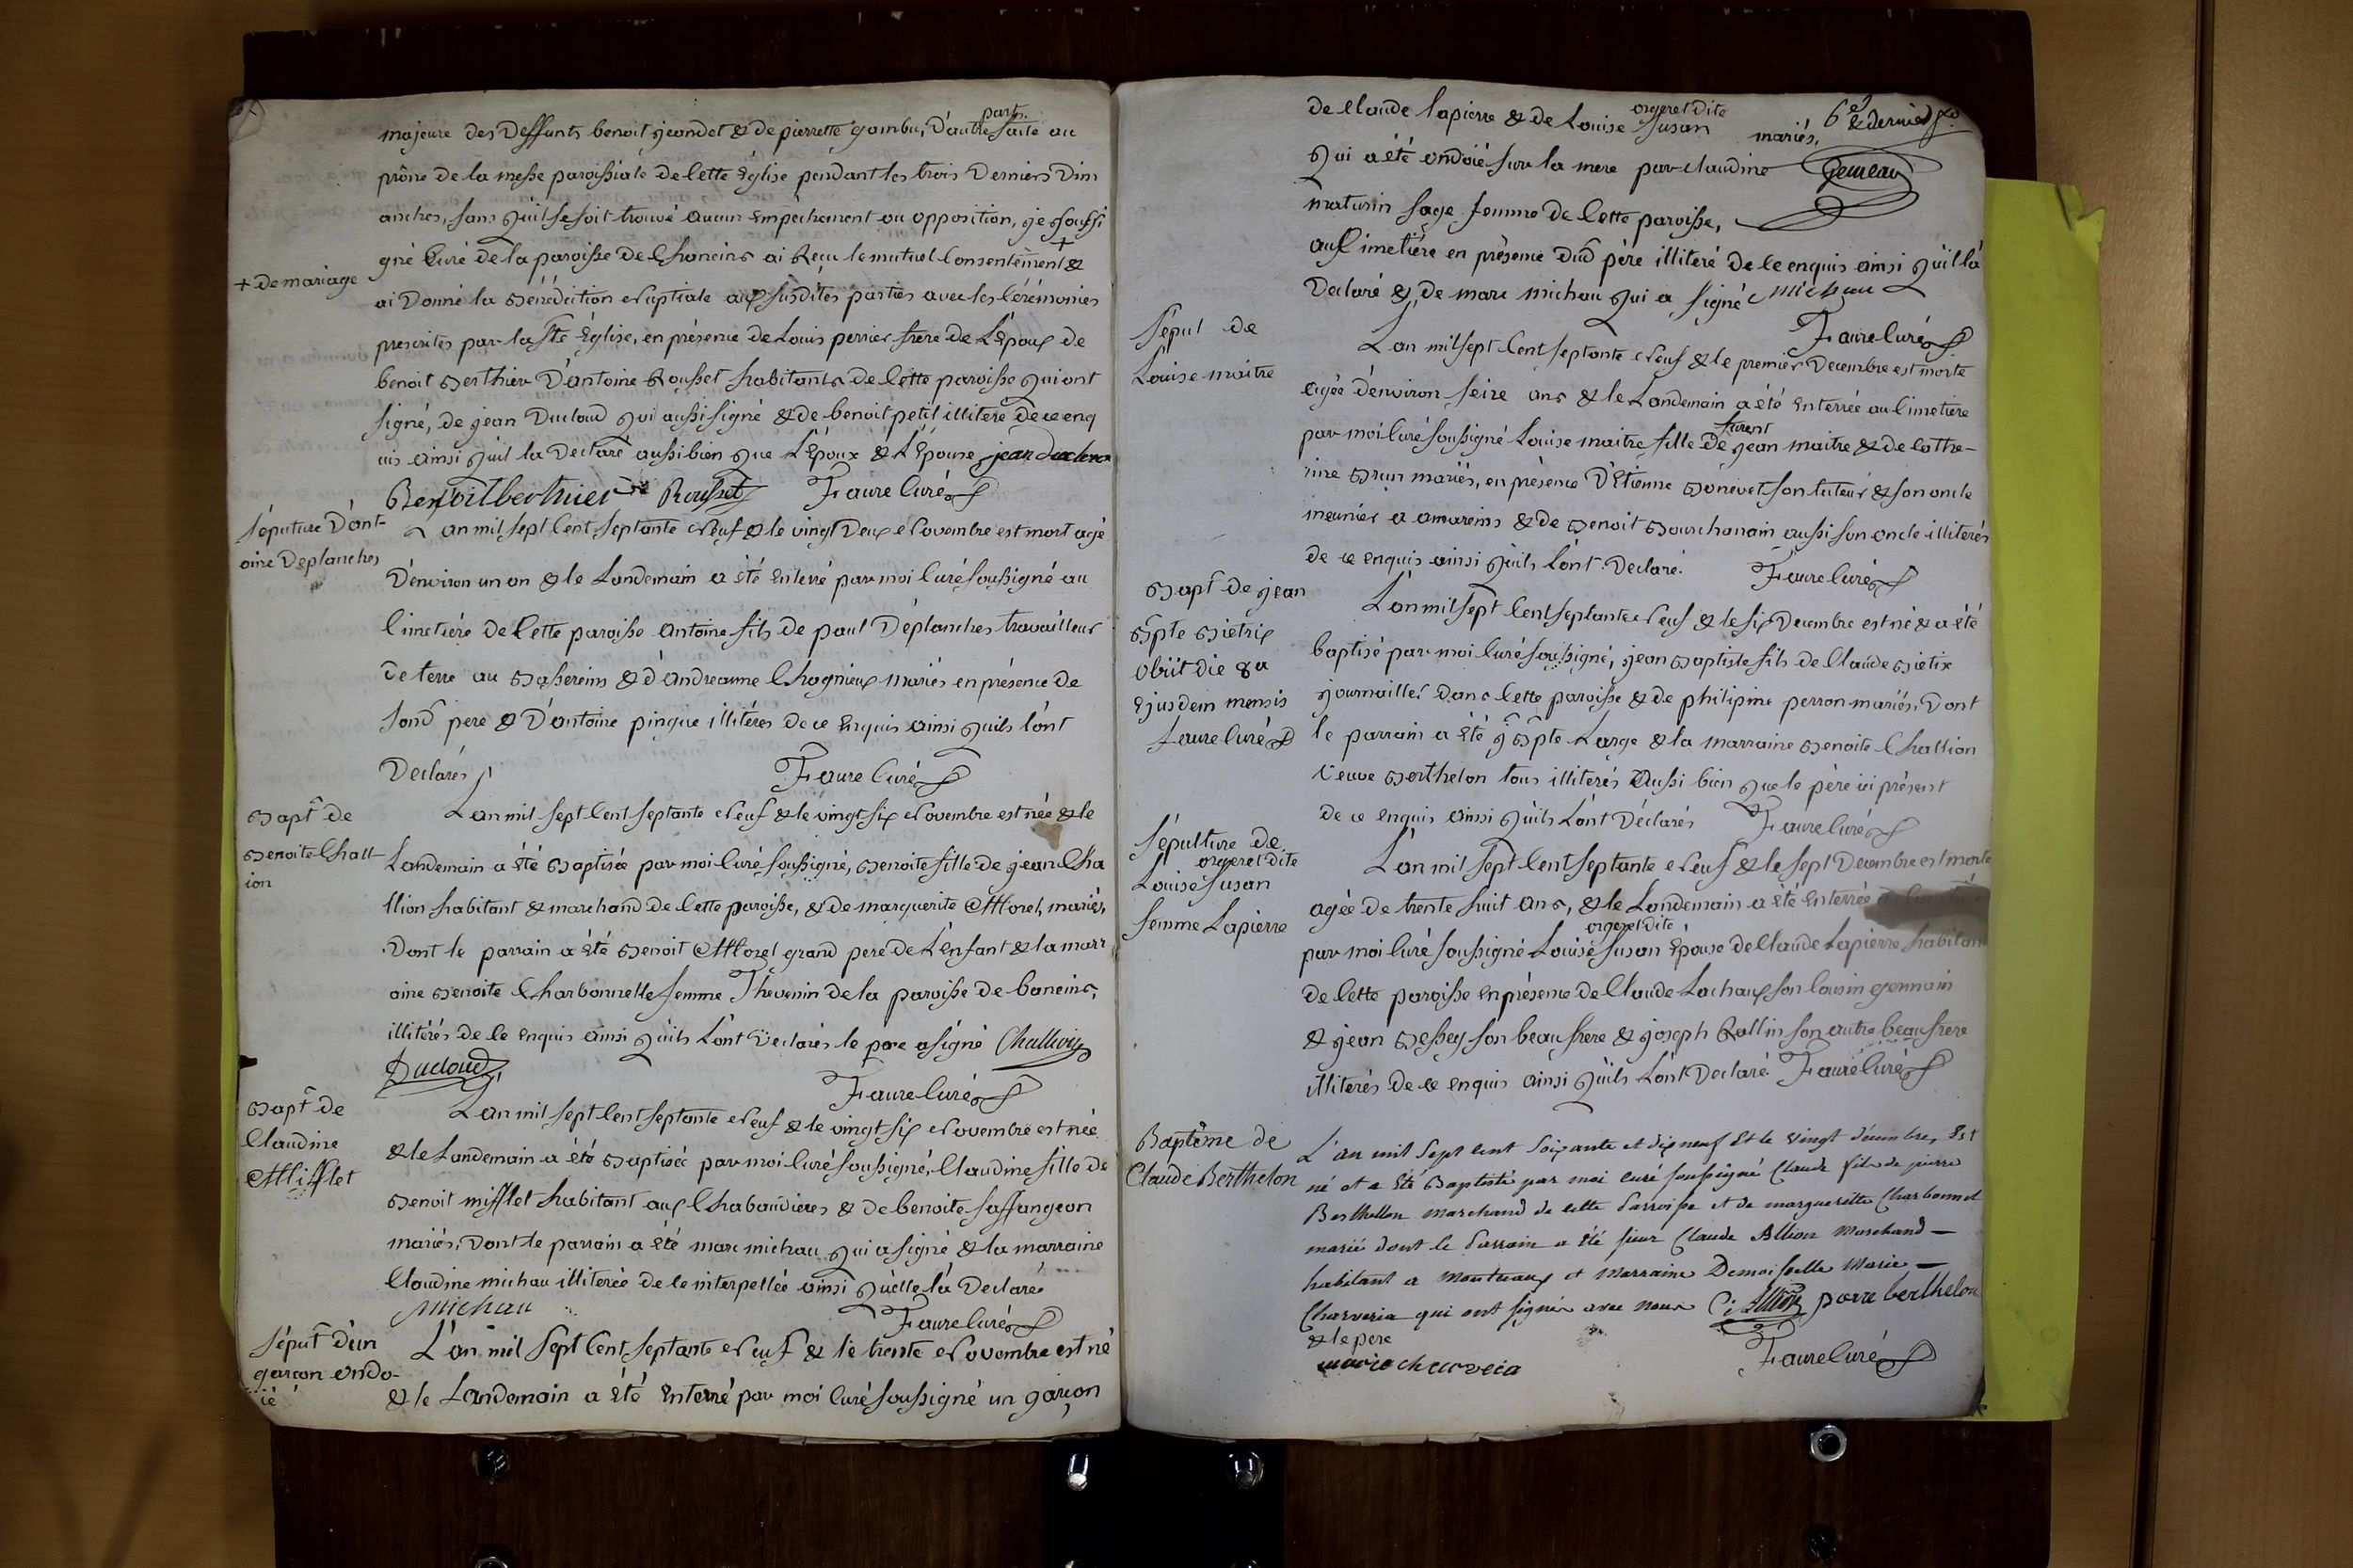 majeure des deffunts benoit jeandet & de pierrette gambu, d'autre part, faite au
prône de la messe paroissiale de cette Église pendant les trois derniers dim
anches, sans qu'il se soit trouvé aucun Empêchement ou opposition, je soussi
gné Curé de la paroisse de Chaneins ai Reçu le mutuel Consentement + &
+ de mariage
ai donné la Bénédiction Nuptiale aux susdites parties avec les Cérémonies
prescrites par la Ste Église, en présence de Louis perrier frère de L'Époux de
benoit Berthier d'antoine Rousset habitants de Cette paroisse qui ont
signé, de jean Ducloud qui aussi signé & de benoit petit illiteré de ce enq
uis ainsi qu'il la declaré aussi bien que L'Époux & L'Épouse jean Duclou
Benoit berthier Rousset Faure Curé
Séputure d'ant-
oine Deplanches
L'an mil sept Cent septante Neuf & le vingt deux Novembre est mort agé
d'environ un an & le Landemain a été Enterré par moi Curé soussigné au
Cimetiére de Cette paroisse antoine fils de paul Déplanches travailleur
de terre au Bassereins & d'andreanne Chagnieux mariés en présence de
sond pere & d'antoine pingue illitéres de ce Enquis ainsi qu'ils l'ont
Declarés Faure Curé
Bapt de
Benoite Chall
ion
L'an mil sept Cent septante Neuf & le vingt six Novembre est née & le
Landemain a été Baptisée par moi Curé soussigné, Benoite fille de jean Cha
llion habitant & marchand de Cette paroisse, & de marguerite Morel, mariés,
Dont le parrain a été Benoit Morel grand pere de L'enfant & la marr
aine Benoite Charbonnelle femme Thevenin de la paroisse de baneins,
illitérés de Ce Enquis ainsi qu'ils L'ont Declarés le pere a signé Challion
Ducloud Faure Curé
Bapt de
Claudine
Mifflet
L'an mil sept Cent septante Neuf & le vingt six Novembre est née
& le Landemain a été Baptisée par moi Curé soussigné, Claudine fille de
Benoit mifflet habitant aux Chabaudieres & de benoite saffangeon
mariés, Dont le parrain a été marc michau qui a signé & la marraine
Claudine michau illiterée de Ce interpellée ainsi qu'elle l'a Declaré
Michau Faure Curé
Séput d'un
garçon ondo-
ié
L'an mil sept Cent septante Neuf & le trente Novembre est né
& le Landemain a été Enterré par moi Curé soussigné un garçon
6e & dernier
de Claude lapierre & de Louise orgeret dite susan mariés,
qui a été ondoié sur la mere par claudine
maturin sage femme de Cette paroisse,
au Cimetiére en présence dud père illiteré de Ce enquis ainsi qu'il la
Declaré & de marc michau qui a signé Michau
Faure Curé
Sépul de
Louise maitre
L'an mil sept Cent septante Neuf & le premier Decembre est morte
agée d'environ seize ans & le Landemain a été Enterrée au Cimetiere
par moi Curé soussigné Louise maitre fille de furent jean maitre & de Cathe-
rine Brun mariés, en présence d'Étienne Bonevet son tuteur & son oncle
meunier a amareins & de Benoit Bourchanain aussi son oncle illiterés
de ce enquis ainsi qu'ils L'ont Declaré. Faure Curé
Bapt de jean
Bpte Bietrix
Obiit die 8a
Ejusdem mensis
Faure Curé
L'an mil sept Cent septante Neuf & le six Decembre est né & a été
baptisé par moi Curé soussigné, jean Baptiste fils de Claude Bietix
journaillier dans Cette paroisse & de philipine perron mariés, Dont
le parrain a été j Bpte Large & la marraine Benoite Challion
veuve Berthelon tous illiterés aussi bien que le père ici présent
de ce enquis ainsi qu'ils L'ont Déclarés Faure Curé
Sépulture de
Louise orgeret dite susan
femme Lapierre
L'an mil sept Cent septante Neuf & le sept Decembre est morte
agée de trente huit ans, & le Landemain a été Enterrée
par moi Curé soussigné Louise orgeret dite susan Épouse de Claude Lapierre habitan
de Cette paroisse En présence de Claude Lachaux son Cousin germain
& jean Bessey son beau frere & joseph Rollin son autre beau frere
illiterés de ce enquis ainsi qu'ils L'ont Declaré Faure Curé
Baptême de
Claude Berthelon
L'an mil sept cent soixante et dix neuf Et le vingt décembre, Est
né et a Été Baptisté par moi curé soussigné Claude fils de pierre
Berthellon marchand de cette Parroisse et de marguerite Charbonnet
marié dont le Parrain a Été sieur Claude Allion Marchand
habitant a Montceaux et Marraine Demoiselle Marie
Charveria qui ont signés avec nous C Allion pierre berthelon
& le pere
marie charveria Faure Curé